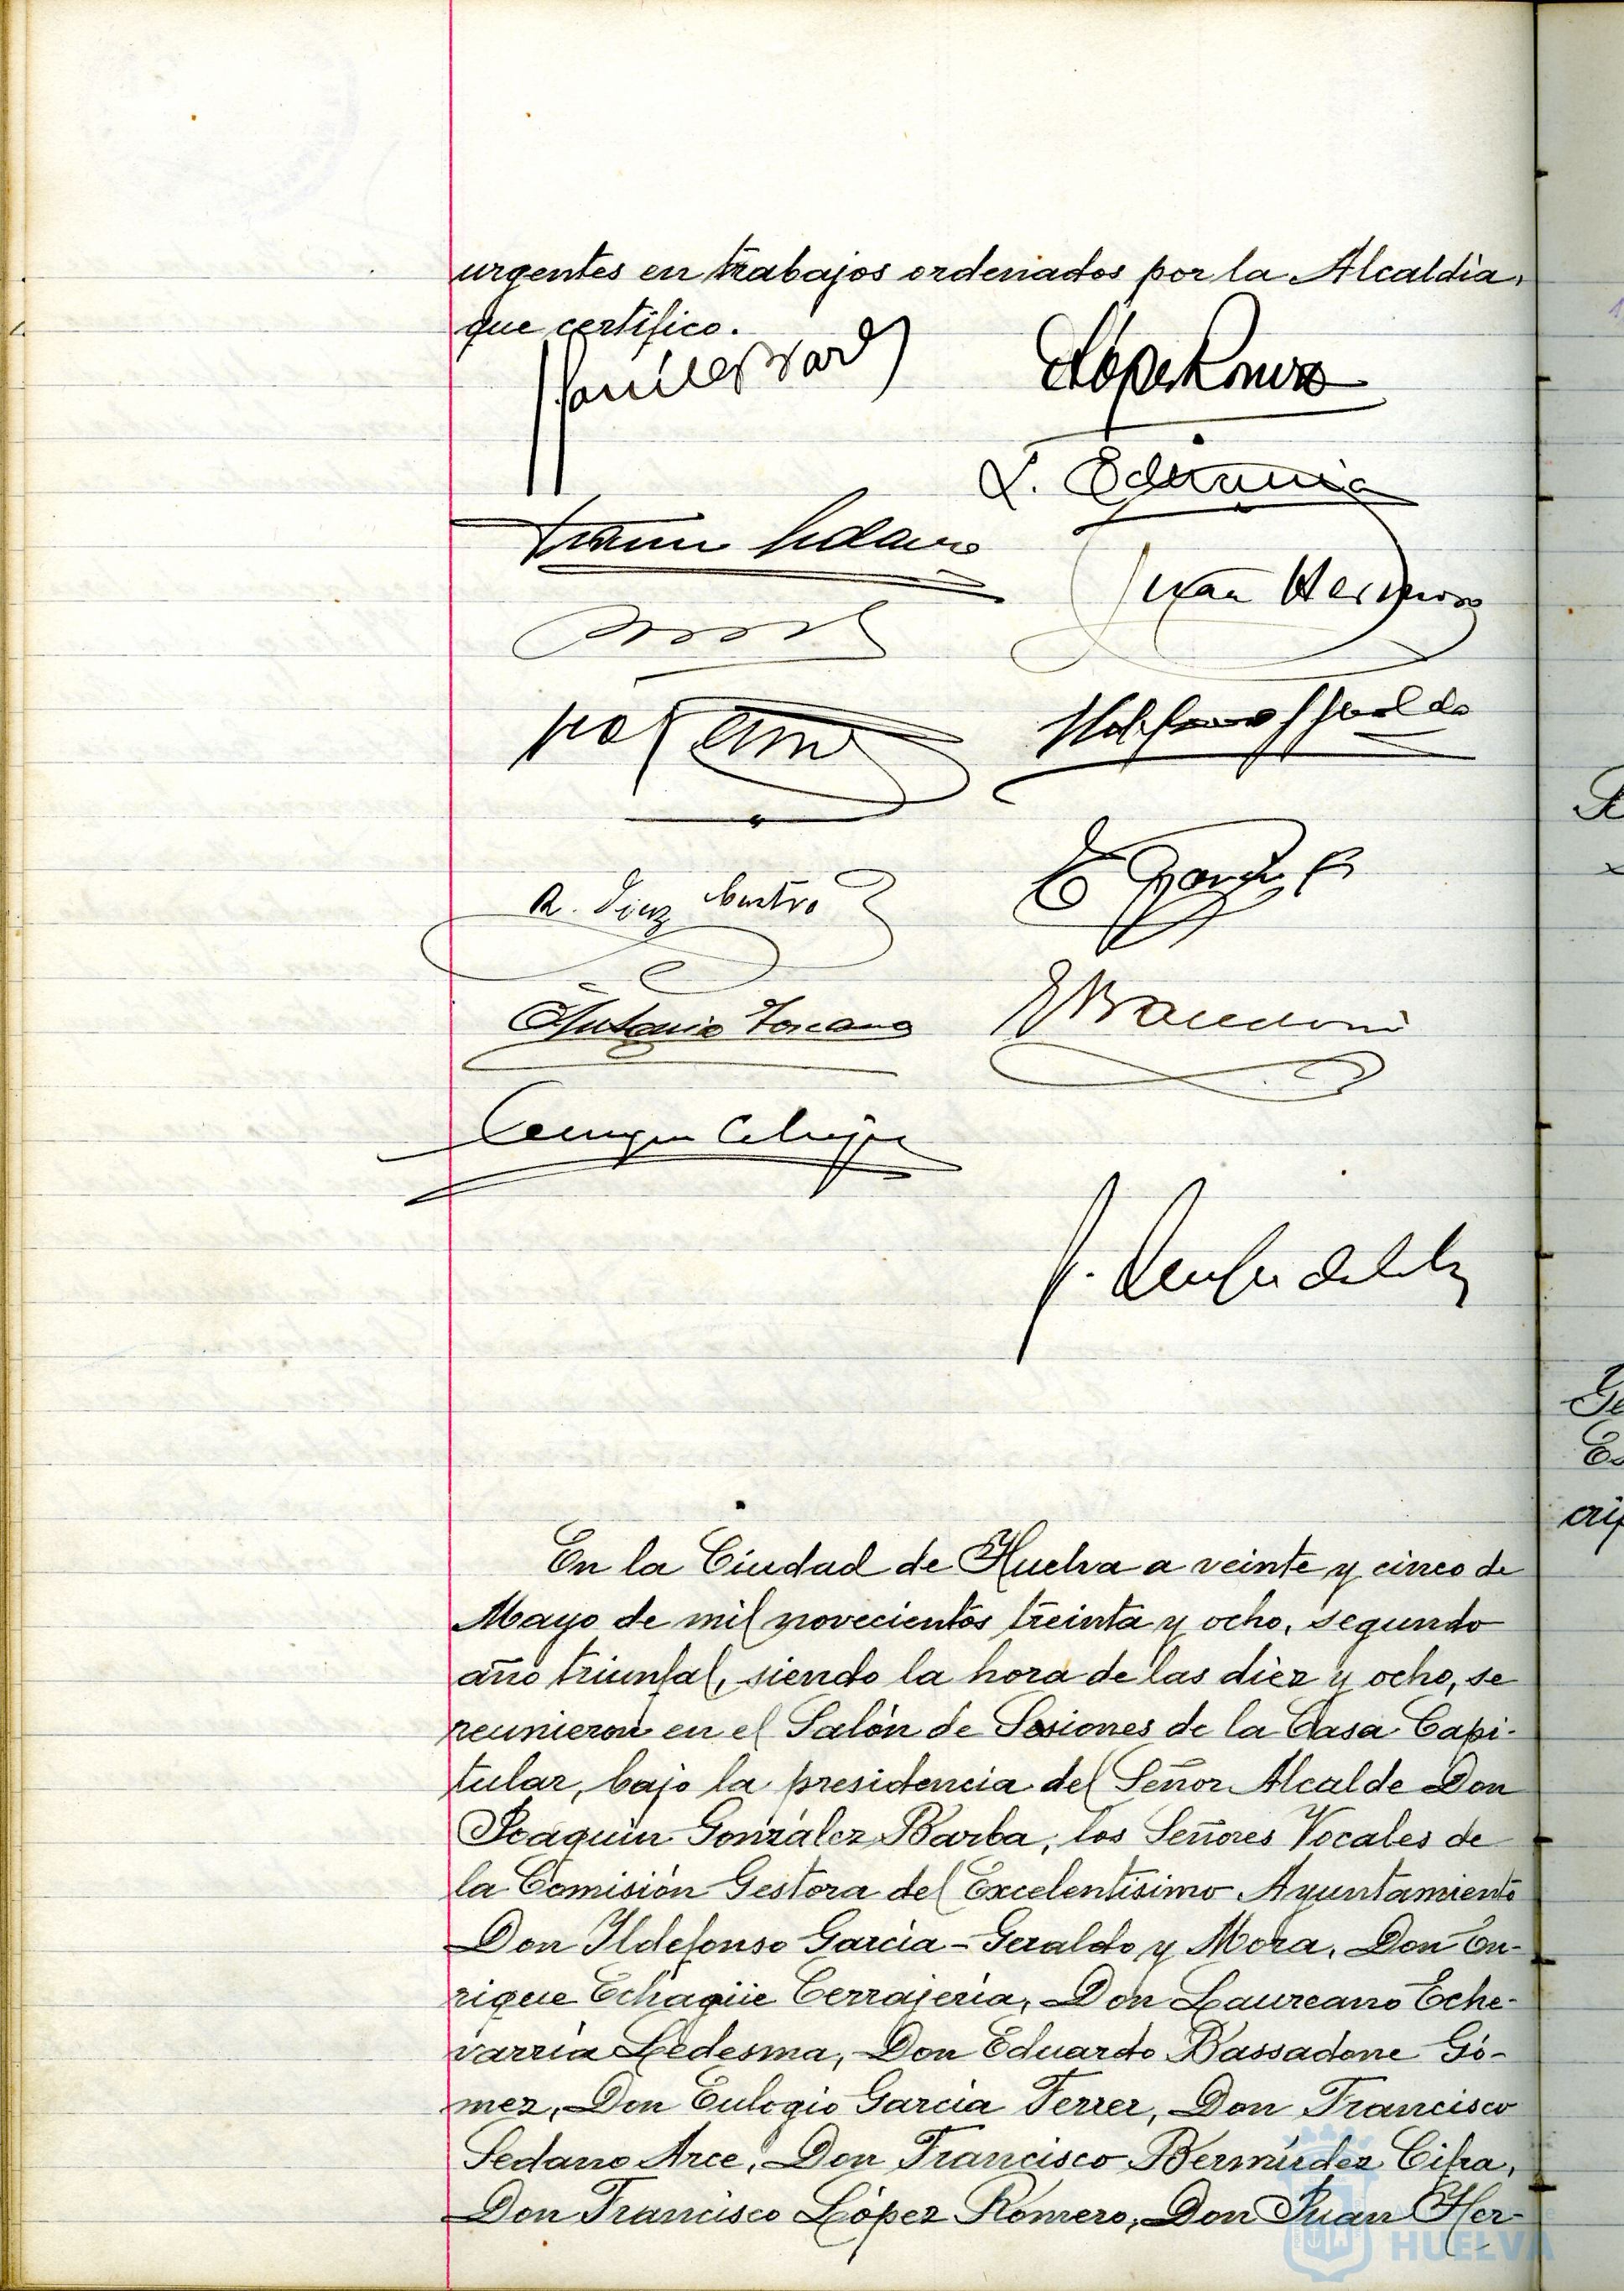 urgentes en trabajos ordenados por la Alcaldia,
que certifico.
LópezRomero
L. Echevarria
Francisco Sedano
Juan Her
A. Diaz Castro
Antonio Toscano
En la Ciudad de Huelva a veinte y cinco de
Mayo de mil novecientos treinta y ocho, segundo
año triunfal, siendo la hora de las diez y ocho, se
reunieron en el Salón de Sesiones de la Casa Capi-
tular, bajo la presidencia del Señor Alcalde Don
Joaquin González Barba, los Señores Vocales de
la Comisión Gestora del Excelentisimo Ayuntamiento
Don Ildefonso Garcia-Geraldo y Mora, Don En-
rique Echagüe Cerrajeria, Don Laureano Eche-
varria Ledesma, Don Eduardo Bassadone Gó-
mez, Don Eulogio Garcia Ferrer, Don Francisco
Sedano Arce, Don Francisco Bermúdez Cifra,
Don Francisco López Romero, Don Juan Her-
HUELVA